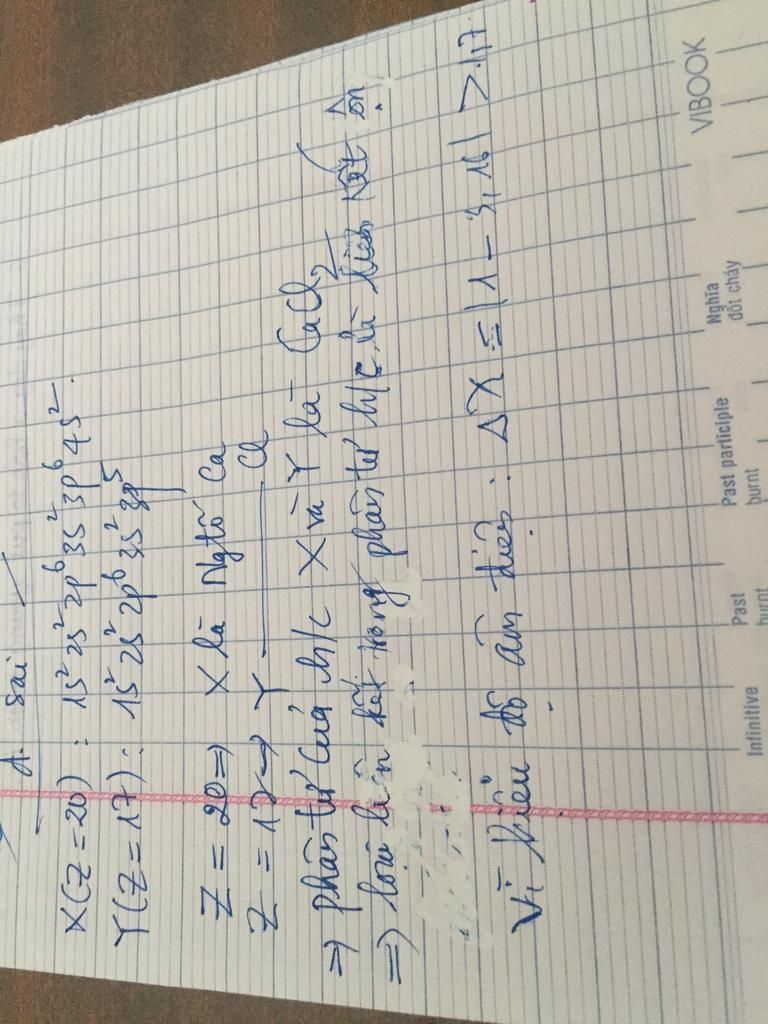 A. Sai
X(Z=20) : 1s² 2s² 2p⁶ 3s² 3p⁶ 4s².
Y(Z=17) : 1s² 2s² 2p⁶ 3s² 3p⁵
Z = 20 => X là Ngtố Ca
Z = 17 → Y Cl
=> phân tử của h/c X và Y là CaCl₂
=> loại liên kết trong phân tử h/c là liên kết ion
Vì hiệu độ âm điện : ΔX = |1 - 3,16| > 1,7
VIBOOK
Infinitive Past Past participle Nghĩa
burnt burnt đốt cháy